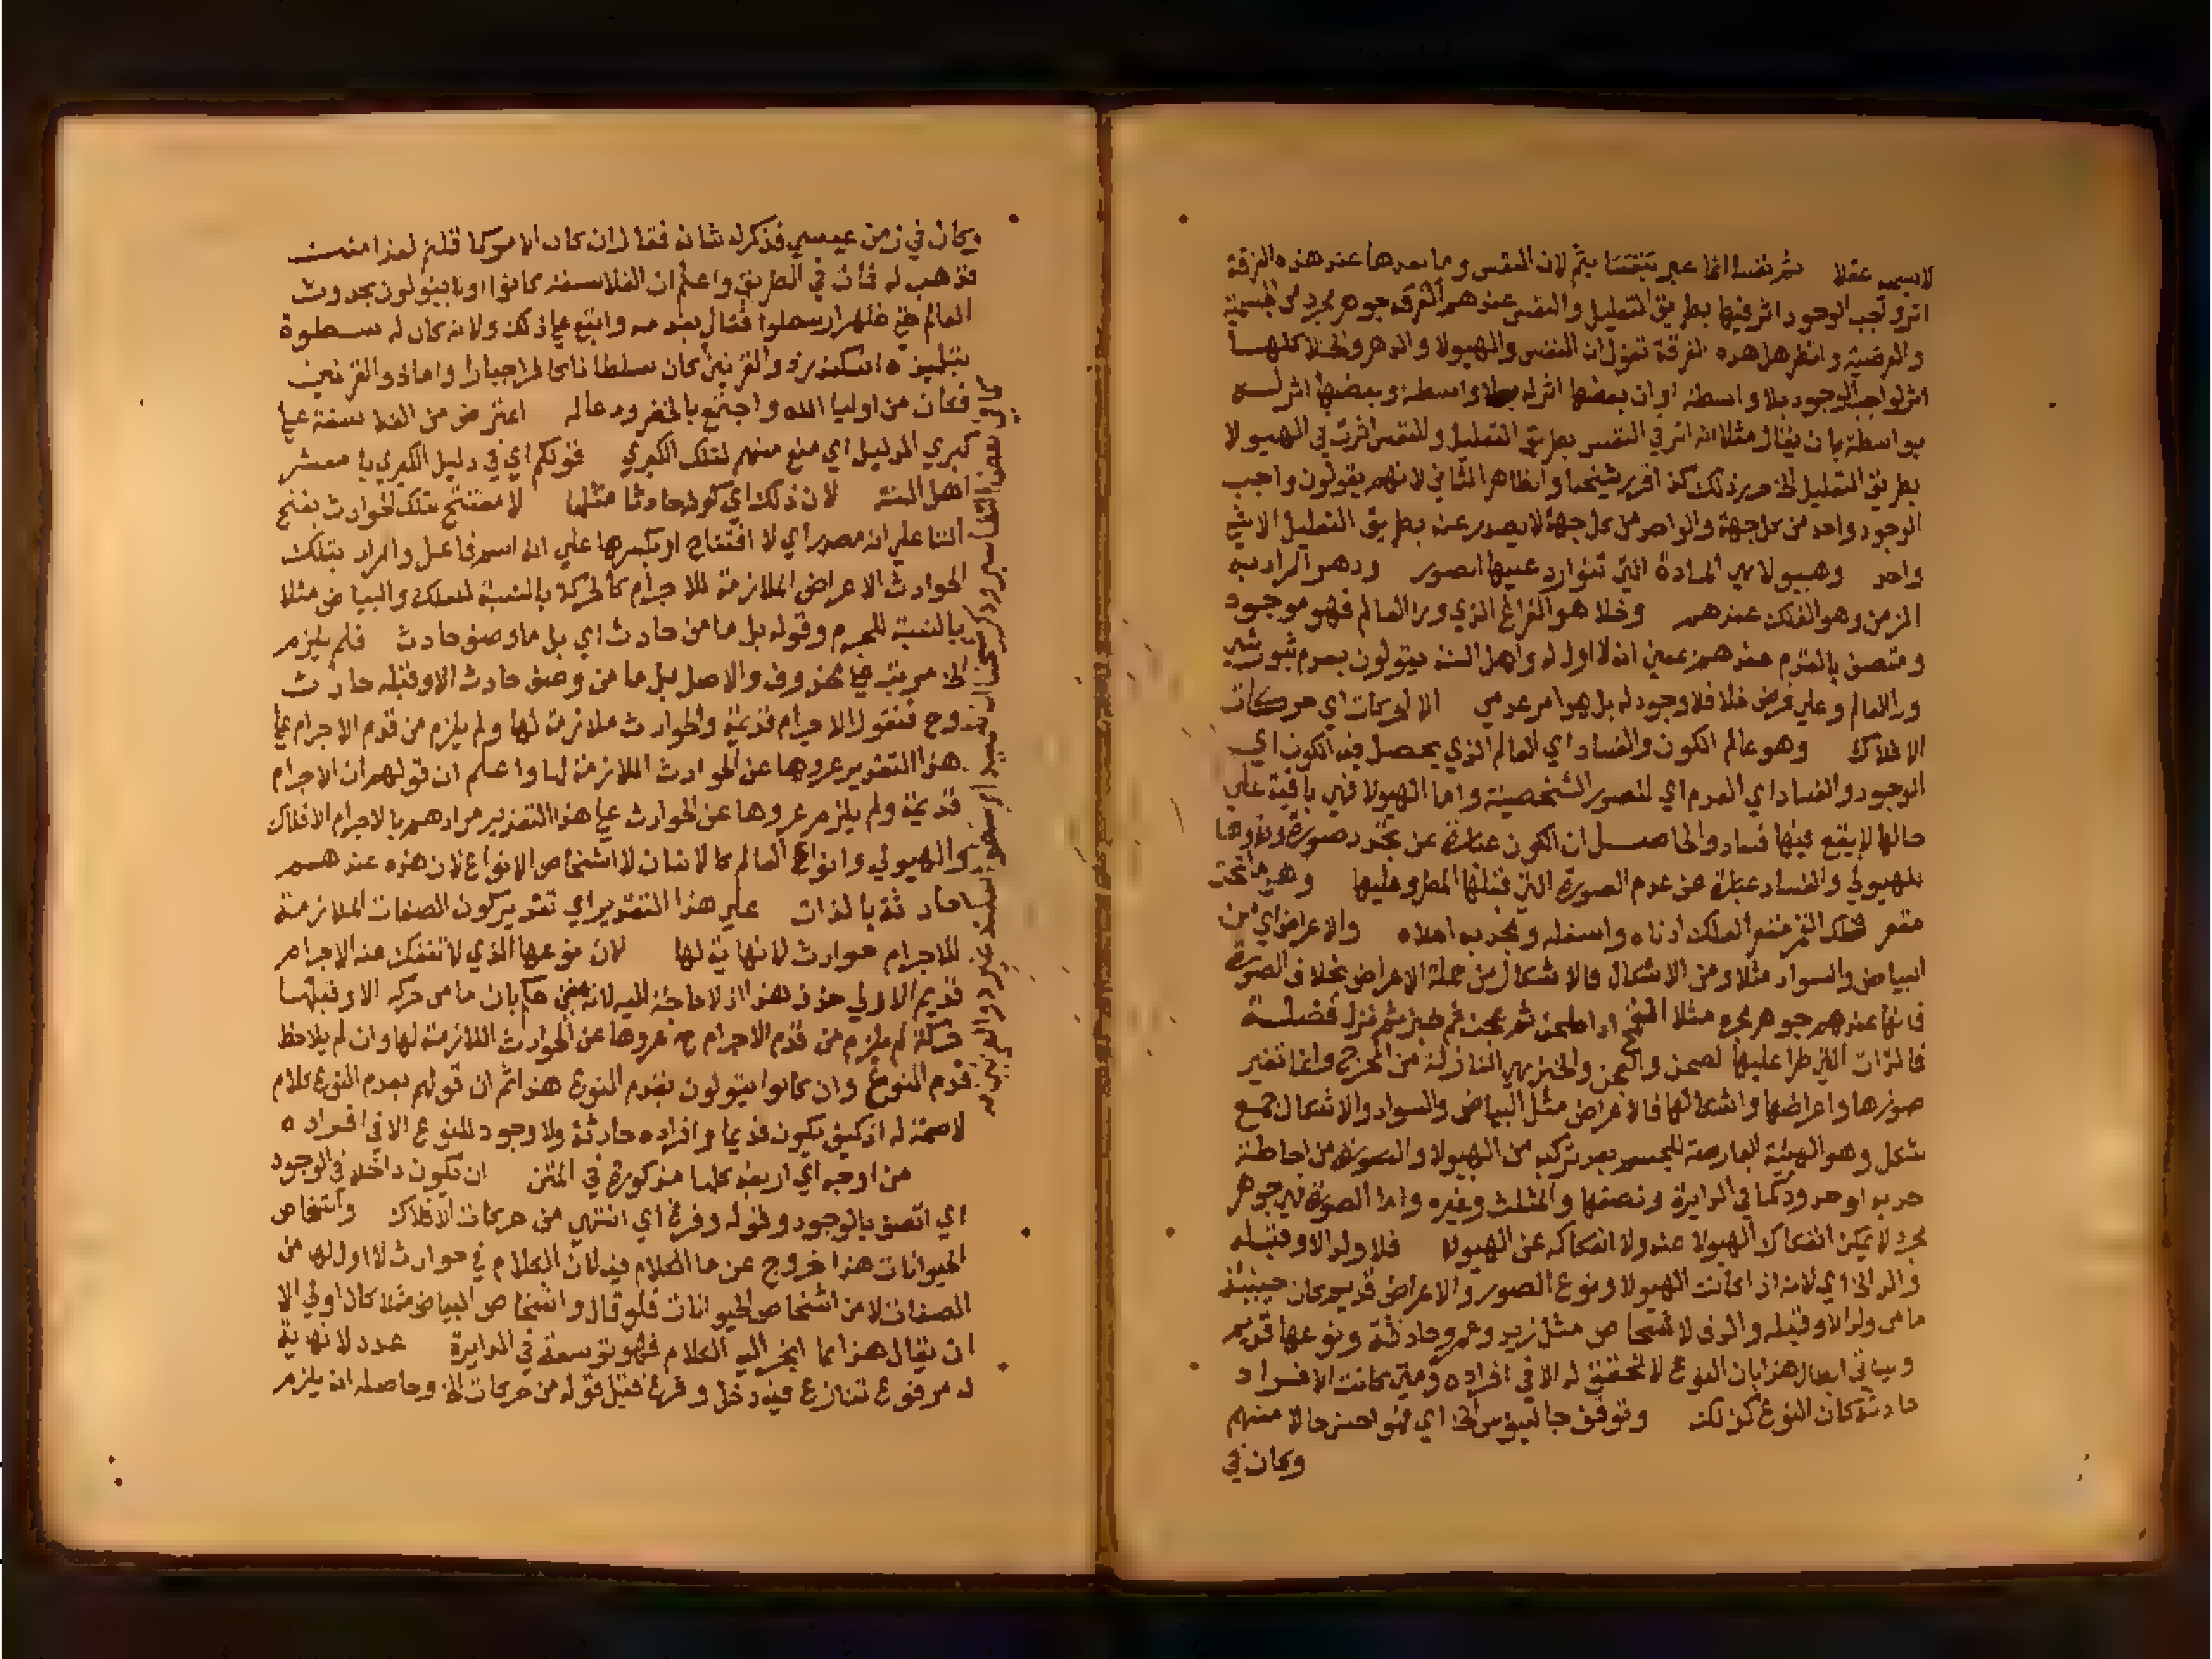 لا يسمي عقلا ثم نفسا انما عبر لان النفس وما بعدها عند هذه الفرقة
اثر واجب الوجود اثر فيها بطريق التعليل والنفس عندهم جوهر مجرد عن الجسمية
والعرضية وانظر هل هذه الفرقة تقول ان النفس والهيولا والدهر والخلا كلها
اثر لواجب الوجود بلا واسطة او ان بعضها اثر له بلا واسطة وبعضها اثر له
بواسطة بان يقال مثلا انه اثر في النفس بطريق التعليل والنفس اثرت في الهيولا
بطريق التعليل الخ حرر ذلك كذا قرر شيخنا والظاهر الثاني لانهم يقولون واجب
الوجود واحد من كل جهة والواحد من كل جهة لا يصدر عنه بطريق التعليل الا شي
واحد وهيولا هي المادة التي تتوارد عليها الصور ودهر المراد به
الزمن وهو الفلك عندهم وخلا هو الفراغ الذي ورا العالم فهو موجود
ومتصف بالقدم عندهم بمعني انه لا اول له واهل السنة يقولون بعدم ثبوت شي
ورا العالم وعلي فرض خلا فلا وجود له بل هو امر عدمي الا لحركات اي حركات
الافلاك وهو عالم الكون والفساد اي العالم الذي يحصل فيه الكون اي
الوجود والفساد اي العدم اي للصور الشخصية واما الهيولا فهي باقية علي
حالها لا يقع فيها فساد والحاصل ان الكون عبارة عن تجدد صورة
للهيولي والفساد عبارة عن عدم الصورة التي قبلها وهو ما تحت
مقعر فلك القمر مقعر الفلك ادناه واسفله ومحدبه اعلاه والاعراض اي من
البياض والسواد مثلا ومن الاشكال فالاشكال من جملة الاعراض بخلاف الصورة
فانها عندهم جوهر مجرد مثلا القمح اذا طحن ثم عجن ثم خبز ثم نزل فضلة
فالذات التي طرا عليها الطحن والعجن والخبز هي النازلة من المخرج وانما تغير
صورها واعراضها واشكالها فالاعراض مثل البياض والسواد والاشكال جمع
شكل وهو الهيئة العارضة للجسم بعد تركبه من الهيولا والصورة من احاطة
حد به او حدود كما في الدايرة ونصفها والمثلث وغيره واما الصورة فهي جوهر
مجرد لا يمكن انفكاك الهيولا عنه ولا انفكاكه عن الهيولا فلا ولد الا وقبله
والد الخ اي لانه اذا كانت الهيولا ونوع الصور والاعراض قديم كان حينيذ
ما من ولد الا وقبله والد فالاشخاص مثل زيد وعمرو حادثة ونوعها قديم
وسياتي ابطال هذا بان النوع لا تحقق له الا في افراده ومتي كانت الافراد
حادثة كان النوع كذلك وتوقف جالينوس الخ اي فهو احسن حالا منهم
وكان في
وكان في زمن عيسي فذكر له شانه فقال ان كان الامر كما قلتم لهذا
فذهب له فمات في الطريق واعلم ان الفلاسفة كانوا اولا يقولون بحدوث
العالم حتي ظهر ارسطو فقال بقدمه واتبع علي ذلك ولانه كان له سطوة
بتلميذه اسكندر ذو القرنين كان سلطانا كافرا جبارا واما ذو القرنين
فكان من اوليا الله واجتمع بالخضر ودعا له اعترض من الفلاسفة علي
كبري الدليل اي منع منهم لتلك الكبري قولكم اي في دليل الكبري يا معشر
اهل السنة لان ذلك اي كونه حادثا مثلها لا مفتتح لتلك الحوادث بفتح
التا علي انه مصدر اي لا افتتاح او بكسرها علي انه اسم فاعل والمراد بتلك
الحوادث الاعراض الملازمة للاجرام كالحركة بالنسبة للفلك والبياض مثلا
بالنسبة للجرم وقوله بل ما من حادث اي بل ما وصف حادث فلم يلزم
الخ مرتب علي محذوف والاصل بل ما من وصف حادث الا وقبله حادث
وح فنقول الاجرام قديمة والحوادث ملازمة لها ولم يلزم من قدم الاجرام علي
هذا التقدير عروها عن الحوادث الملازمة لها واعلم ان قولهم ان الاجرام
قديمة ولم يلزم عروها عن الحوادث علي هذا التقدير مرادهم بالاجرام الافلاك
والهيولي وانواع العالم كالانسان لا اشخاص الانواع لان هذه عندهم
حادثة بالذات علي هذا التقدير اي تقدير كون الصفات الملازمة
للاجرام حوادث لا نهاية لها لان نوعها الذي لا تنفك عنه الاجرام
قديم الاولي حذف هذا اذ لا حاجة اليه لانه متي حكم بان ما من حركة الا وقبلها
حركة لم يلزم من قدم الاجرام ح عروها عن الحوادث اللازمة لها وان لم يلاحظ
قدم النوع وان كانوا يقولون بقدم النوع هذا ثم ان قولهم بقدم النوع كلام
لا صحة له اذ كيف يكون قديما وافراده حادثة ولا وجود للنوع الا في افراده
من اوجه اي اربعة كلها مذكورة في المتن ان يكون داخلا في الوجود
اي اتصف بالوجود وقوله وفرغ اي انتهي من حركات الافلاك واشخاص
الحيوانات هذا خروج عن ما الكلام فيه لان الكلام في حوادث لا اول لها من
الصفات لا من اشخاص الحيوانات فلو قال واشخاص البياض مثلا كان اولي الا
ان يقال هذا مما انجر اليه الكلام فهو توسعة في الدايرة عدد لا نهاية
له مرفوع تنازع فيه دخل وفرغ قبل قوله من حركات الخ وحاصله انه يلزم